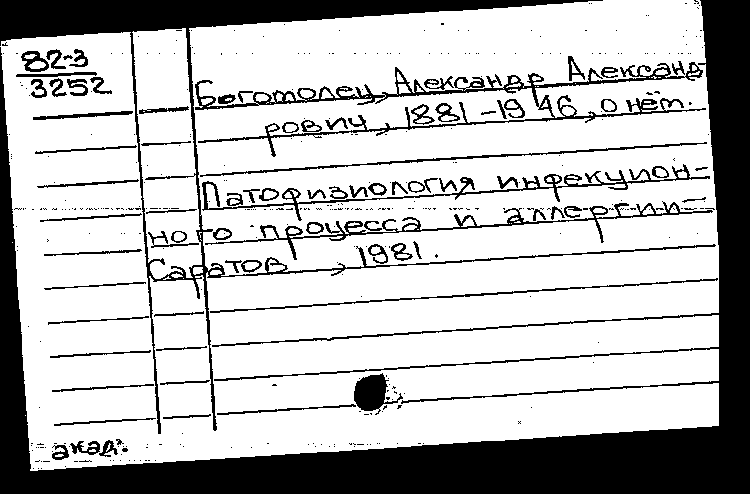 82-3
3252
Богомолец, Александр Александ
рович, 1881-1946, о нём.
Патофизиология инфекцион-
ного процесса и аллергии=
Саратов, 1981.
акад.